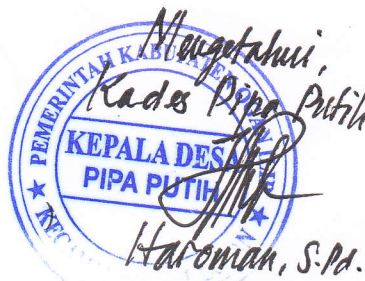 Mengetahui,
Kades Pipa Putih
PEMERINTAH KABUPATEN OGAN ILIR
KEPALA DESA
PIPA PUTIH
Haroman, S.Pd.